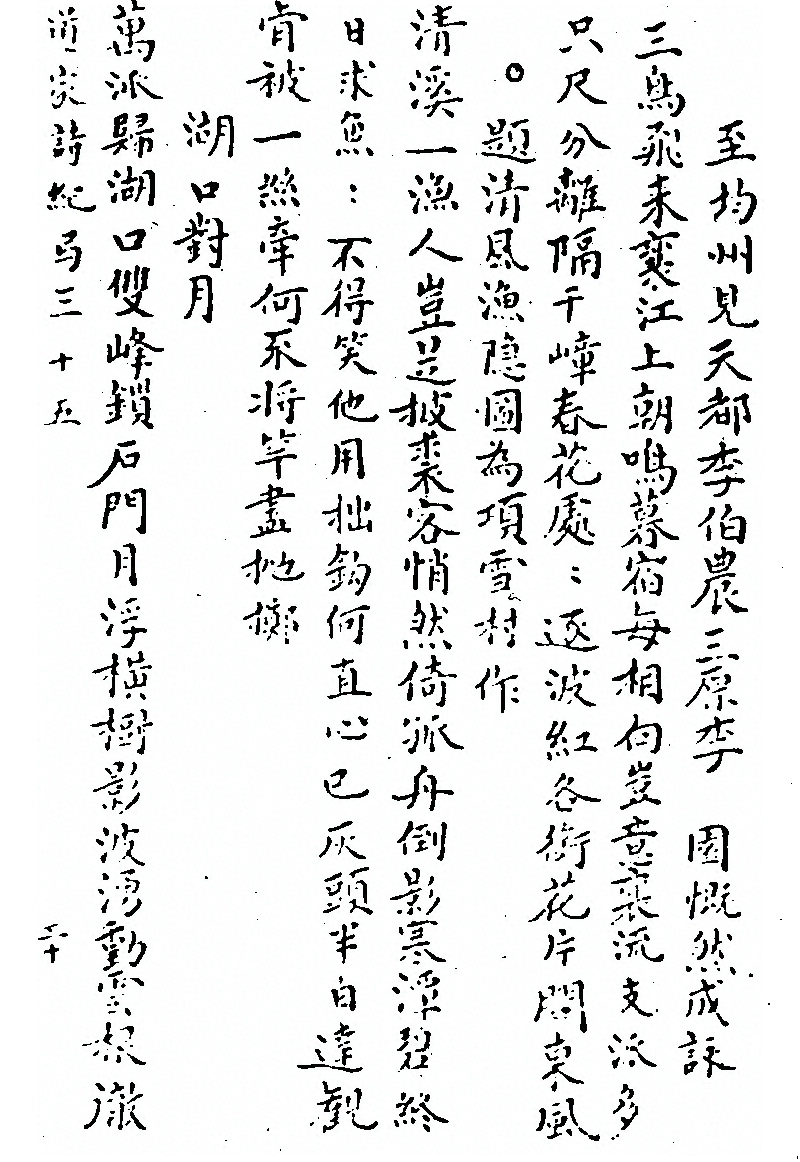 至均州見天都李伯農三原李　固慨然成詠
三鳥飛来襄江上朝鳴暮宿每相向豈意襄流支派多
只尺分離隔千嶂春花處〻逐波紅各銜花片闘東風
。題清風漁隱圖為項雪村作
清溪一漁人豈是披裘客悄然倚孤舟倒影寒潭碧終
日求魚〻不得笑他用拙鈎何直心已灰頭半白達觀
肯被一絲牽何不将竿盡抛擲
湖口對月
萬派歸湖口雙峰鎖石門月浮橫樹影波湧動雲根澈
道家詩紀卷三十五
三十